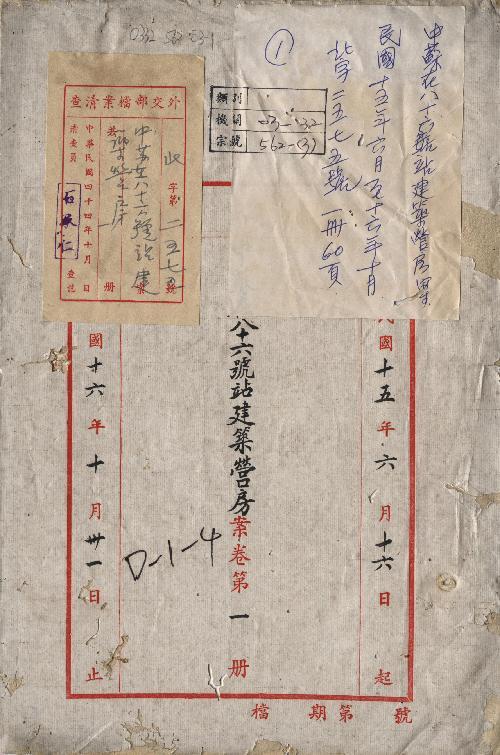 0332 562 53-1
①
中蘇在八十六號站建築營房案
民國十五年六月至十六年十月
北字二五七五號 一冊60頁
類別
機關 03-32
宗號 562-(3)
外交部檔案清查
北字第二五七五號
中蘇在八十六號站建
築營房案
共 冊
中華民國四十四年十月 日
清查員 石承仁 查訖
民國十五年六月十六日起
八十六號站建築營房案卷第一冊
國十六年十月卅一日止
D-1-4
檔 期 第 號